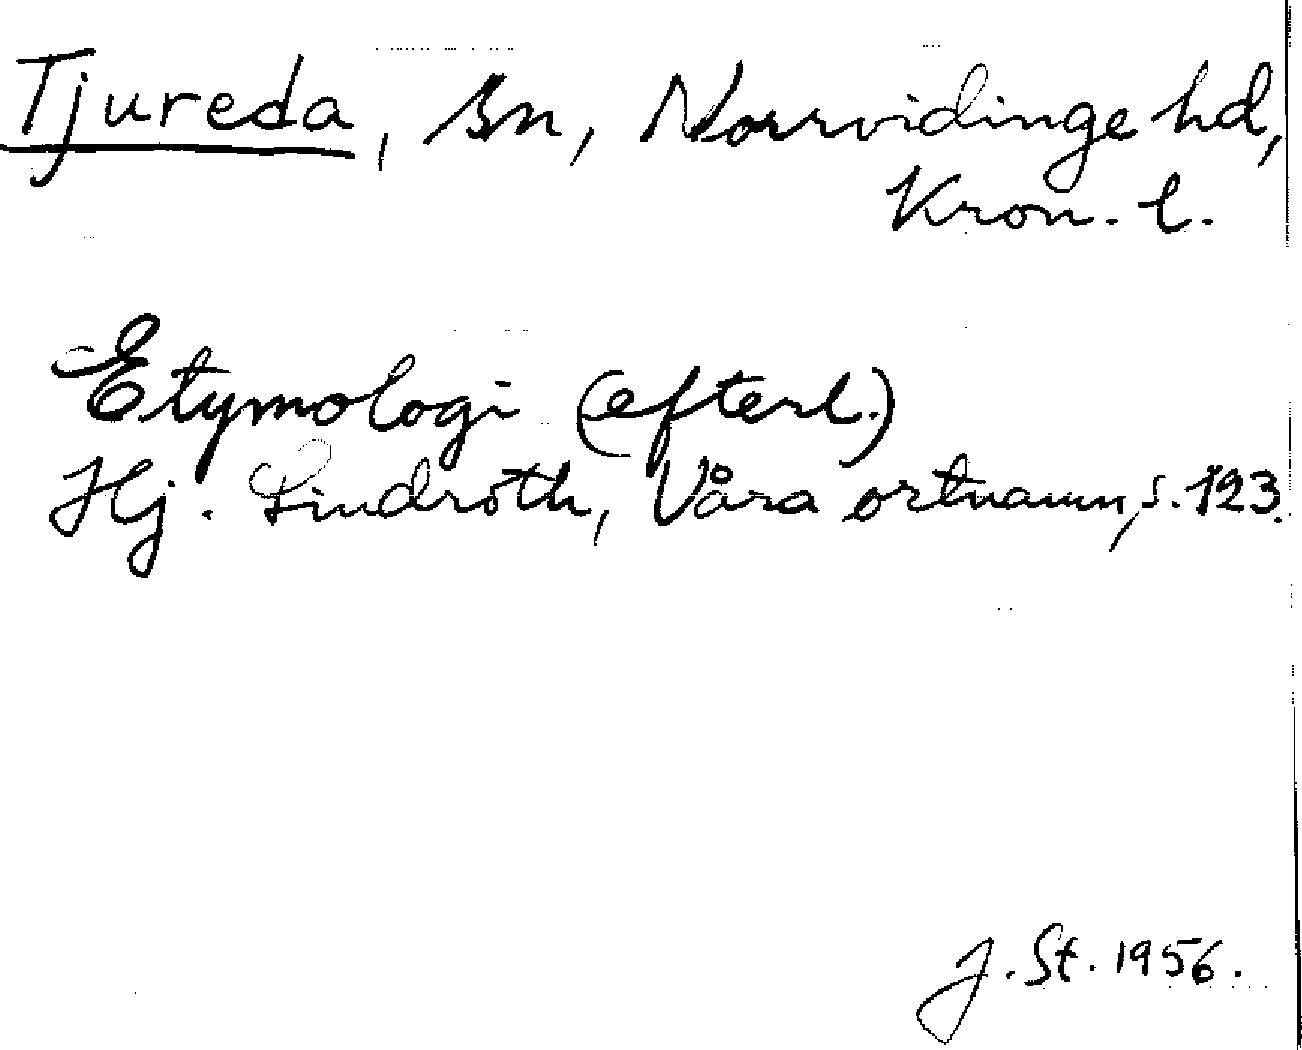 Tjureda, sn, Norrvidinge hd,
Kron. l.
Etymologi (efterl.)
Hj. Lindroth, Våra ortnamn, s. 123.
J. St. 1956.